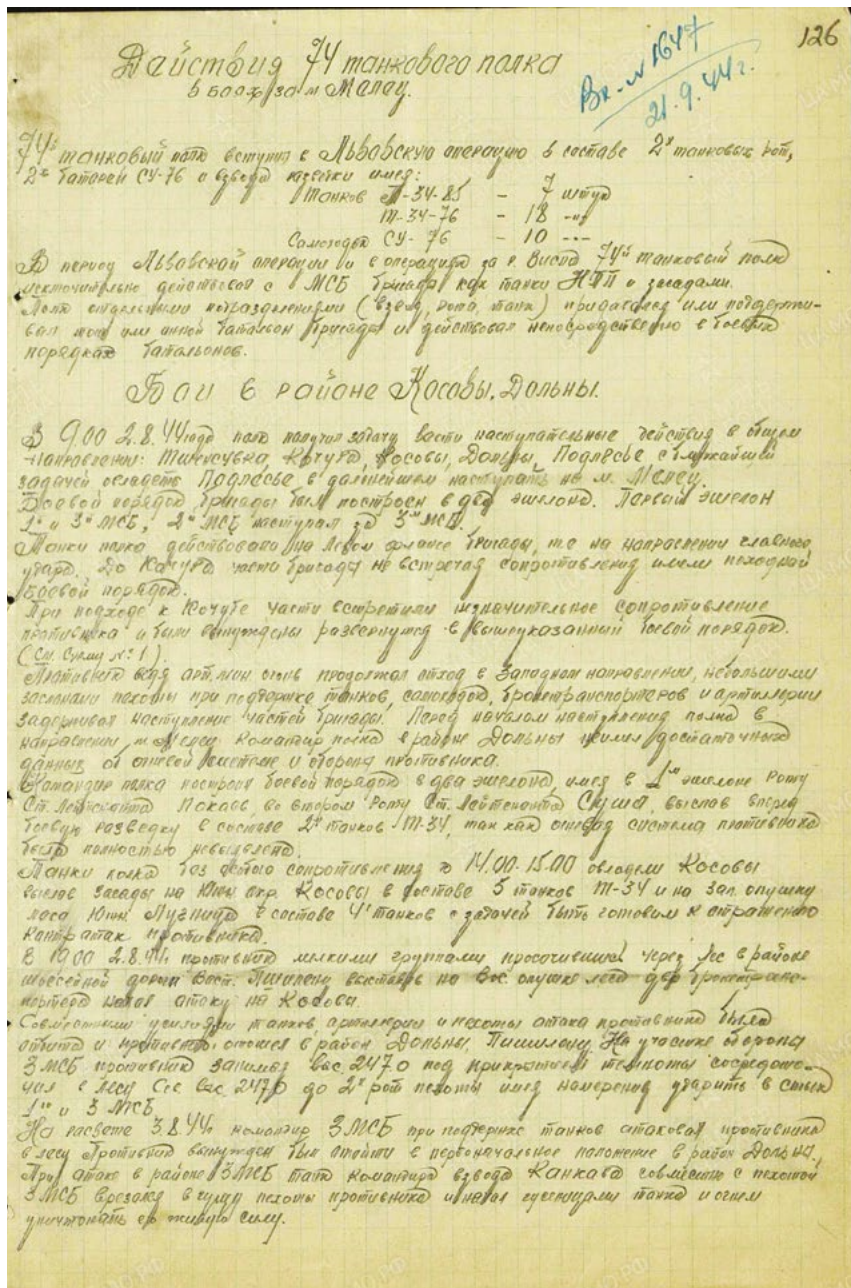 126
Вх-№ 1647
21.9.44г.
Действия 74 танкового полка
в боях за м Малец.
74й танковый полк вступил в Львовскую операцию в составе 2х танковых рот,
2х батарей СУ-76 и взвода разведки имея:
Танков Т-34-85 - 7 штук
Т-34-76 - 18 -"-
Самоходов СУ-76 - 10 -"-
В период Львовской операции и в операциях за р. Висла 74й танковый полк
исключительно действовал с МСБ бригады как танки НПП и засадами.
Полк отдельными подразделениями (взвод, рота, танк) придавался или поддержи-
вал тот или иной батальон бригады и действовал непосредственно в боевых
порядках батальонов.
Бои в районе Косовы, Дольны.
В 9.00 2.8.44 года полк получил задачу вести наступательные действия в общем
направлении: Качура, Косовы, Дольны, Подлесье с ближайшей
задачей овладеть Подлесье в дальнейшем наступать на м. Мелец.
Боевой порядок бригады был построен в два эшелона. Первый эшелон
1й и 3й МСБ, 2й МСБ наступал за 3м МСБ.
Танки полка действовали на левом фланге бригады, т.е на направлении главного
удара. До Качура части бригады не встречая сопротивления имели походный
боевой порядок.
При подходе к части встретили незначительное сопротивление
противника и были вынуждены развернутся в вышеуказанный боевой порядок.
(См. Схему №1).
Противник ведя арт. мин огонь продолжал отход в Западном направлении, небольшими
заслонами пехоты при поддержке танков, самоходов, бронетранспортеров и артиллерии
задерживал наступление частей бригады. Перед началом наступления полка в
направлении м Мелец командир полка в районе Дольны достаточных
данных об огневой системе и обороне противника.
Командир полка построил боевой порядок в два эшелона, имея в 1м эшелоне роту
Ст. Лейтенанта во втором роту Ст. Лейтенанта выслав вперед
боевую разведку в составе 2х танков Т-34, так как огневая система противника
была полностью
Танки полка без особого сопротивления к 14.00-15.00 овладели Косовы
выслав засады на Южн окр. Косовы в составе 5 танков Т-34 и на зап. опушку
леса Южн. в составе 4х танков с задачей быть готовым к отражению
контратак противника.
В 19.00 2.8.44г. противник мелкими группами просочившись через лес в районе
шоссейной дороги Вост. выставив на Вос. опушке леса два бронетранс-
портера начал атаку на Косова.
Совместными усилиями танков артиллерии и пехоты атака противника была
отбита и противник отошел в район Дольны, На участке обороны
3 МСБ противник занимая выс. 247.0 под прикрытием темноты сосредото-
чил в лесу Сев выс. 247.0 до 2х рот пехоты имея намерение ударить в стык
1й и 3 МСБ
На рассвете 3.8.44г командир 3 МСБ при поддержке танков атаковал противника
в лесу. Противник вынужден был отойти в первоначальное положение в район Дольна.
При атаке в районе 3 МСБ танк командира взвода Канкава совместно с пехотой
3 МСБ врезался в гущу пехоты противника и начал гусеницами танка и огнем
уничтожать его живую силу.